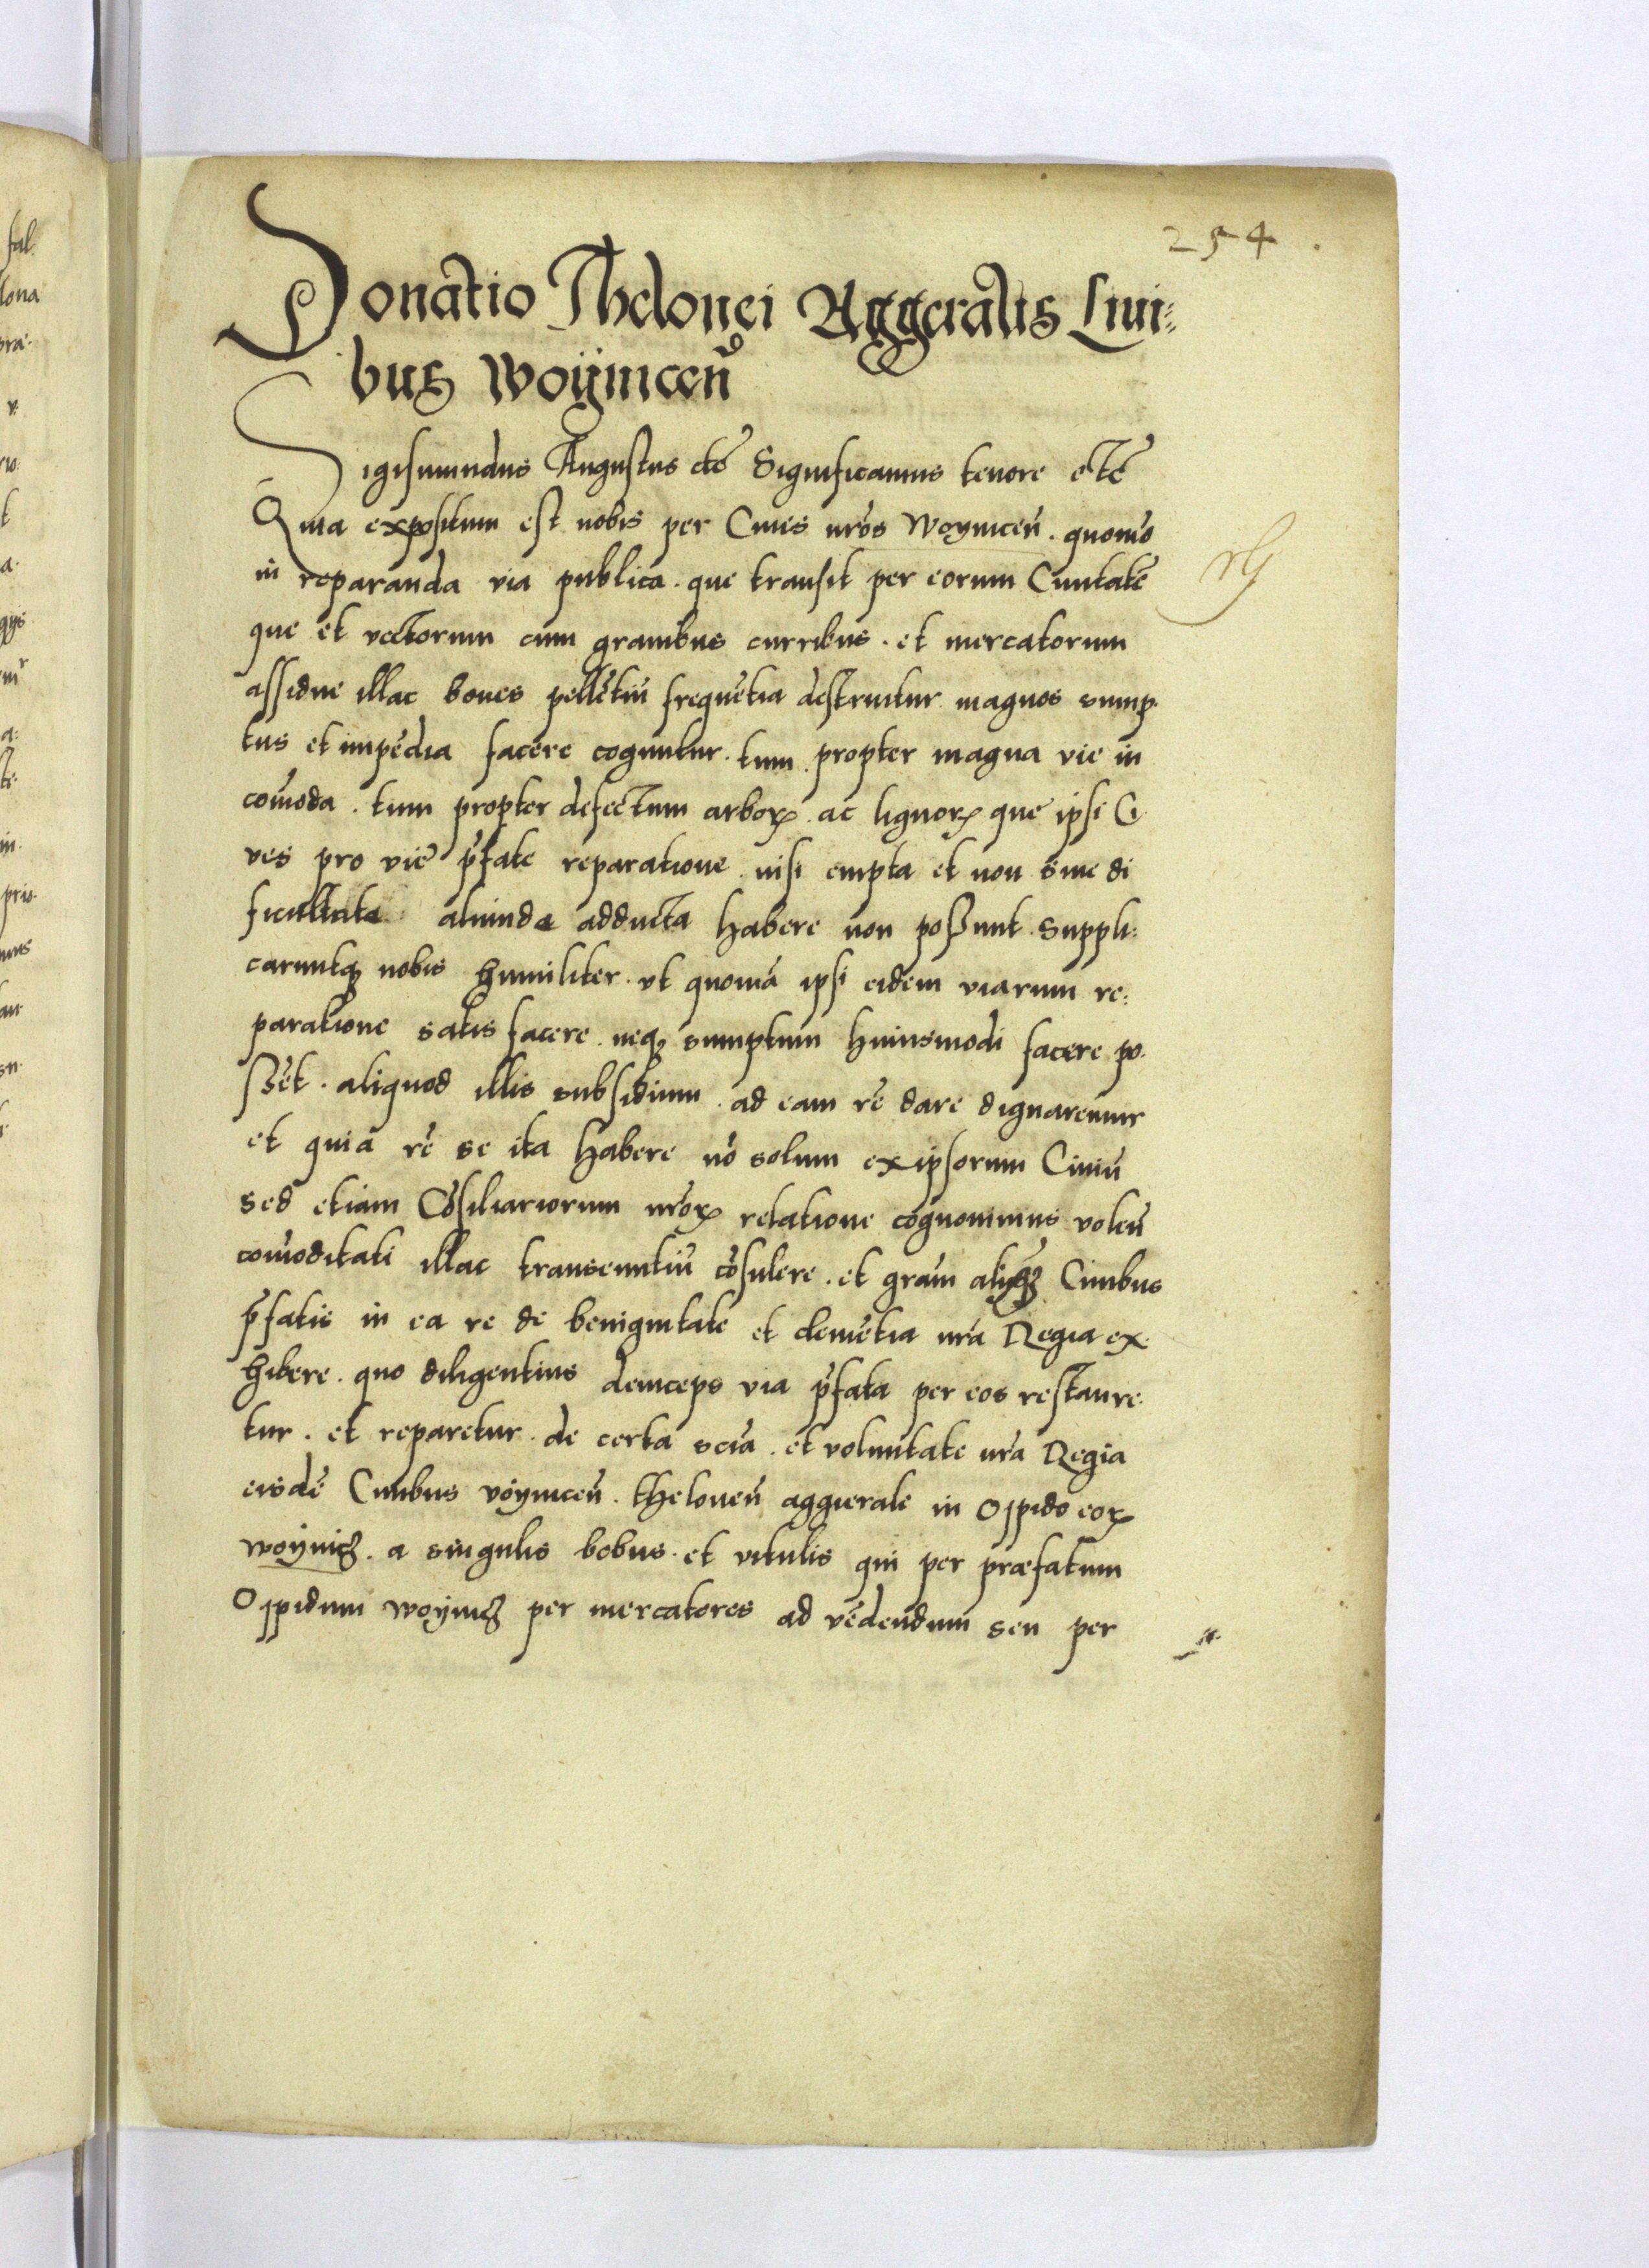 254
Donatio Thelonei Aggeralis Civi=
bus Woÿnicen̄
Sigismundus Augustus etc̄ Significamus tenore etc̄
Quia expositum est nobis per Ciues nr̄os Woynicen̄. quomō
in reparanda via publica. que transit per eorum Ciuitatē
que et vectorum cum grauibus curribus. et mercatorum
assidue illac boues pellētiū frequētia destruitur magnos sump.
tus et impēdia facere coguntur. tum propter magna vie in
com̄oda. tum propter defectum arborꝝ. ac lignorꝝ que ipsi Ci
ves pro vie p̄fate reparatione. nisi empta et non sine di
ficultate aliunde adducta habere non possunt. Suppli:
caruntqꝫ nobis humiliter. vt quoniā ipsi eidem viarum re:
paratione satis facere. neqꝫ sumptum huiusmodi facere po.
ssēt. aliquod illis subsidium. ad eam rē dare dignaremur
et quia rē se ita habere nō solum ex ipsorum Ciuiū
sed etiam Cōsiliariorum nr̄orꝝ relatione cognouimus volen̄
com̄oditati illac transeuntiū cōsulere. et gram̄ aliquā Ciuibus
p̄fatis in ea re de benignitate et clemētia nr̄a Regia ex.
hibere. quo diligentius deinceps via p̄fata per eos restaure.
tur. et reparetur. de certa scīa. et voluntate nr̄a Regia
eisdē Ciuibus voÿnicen̄. thelonen̄ aggerale in Oppido eorꝝ
woÿnicꝫ. a singulis bobus. et vitulis qui per præfatum
Oppidum woÿnicꝫ per mercatores ad vēdendum seu per